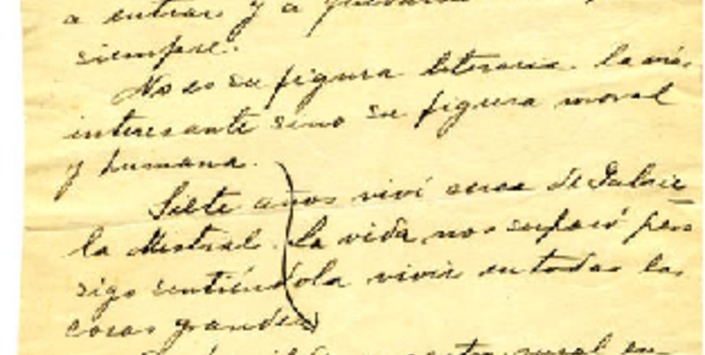 a entrar y a quedarse
siempre.
No es su figura literaria la más
interesante sino su figura moral
y humana.
Siete años viví cerca de Gabrie
la Mistral. La vida nos separó pero
sigo sintiéndola vivir en todas las
cosas grandes